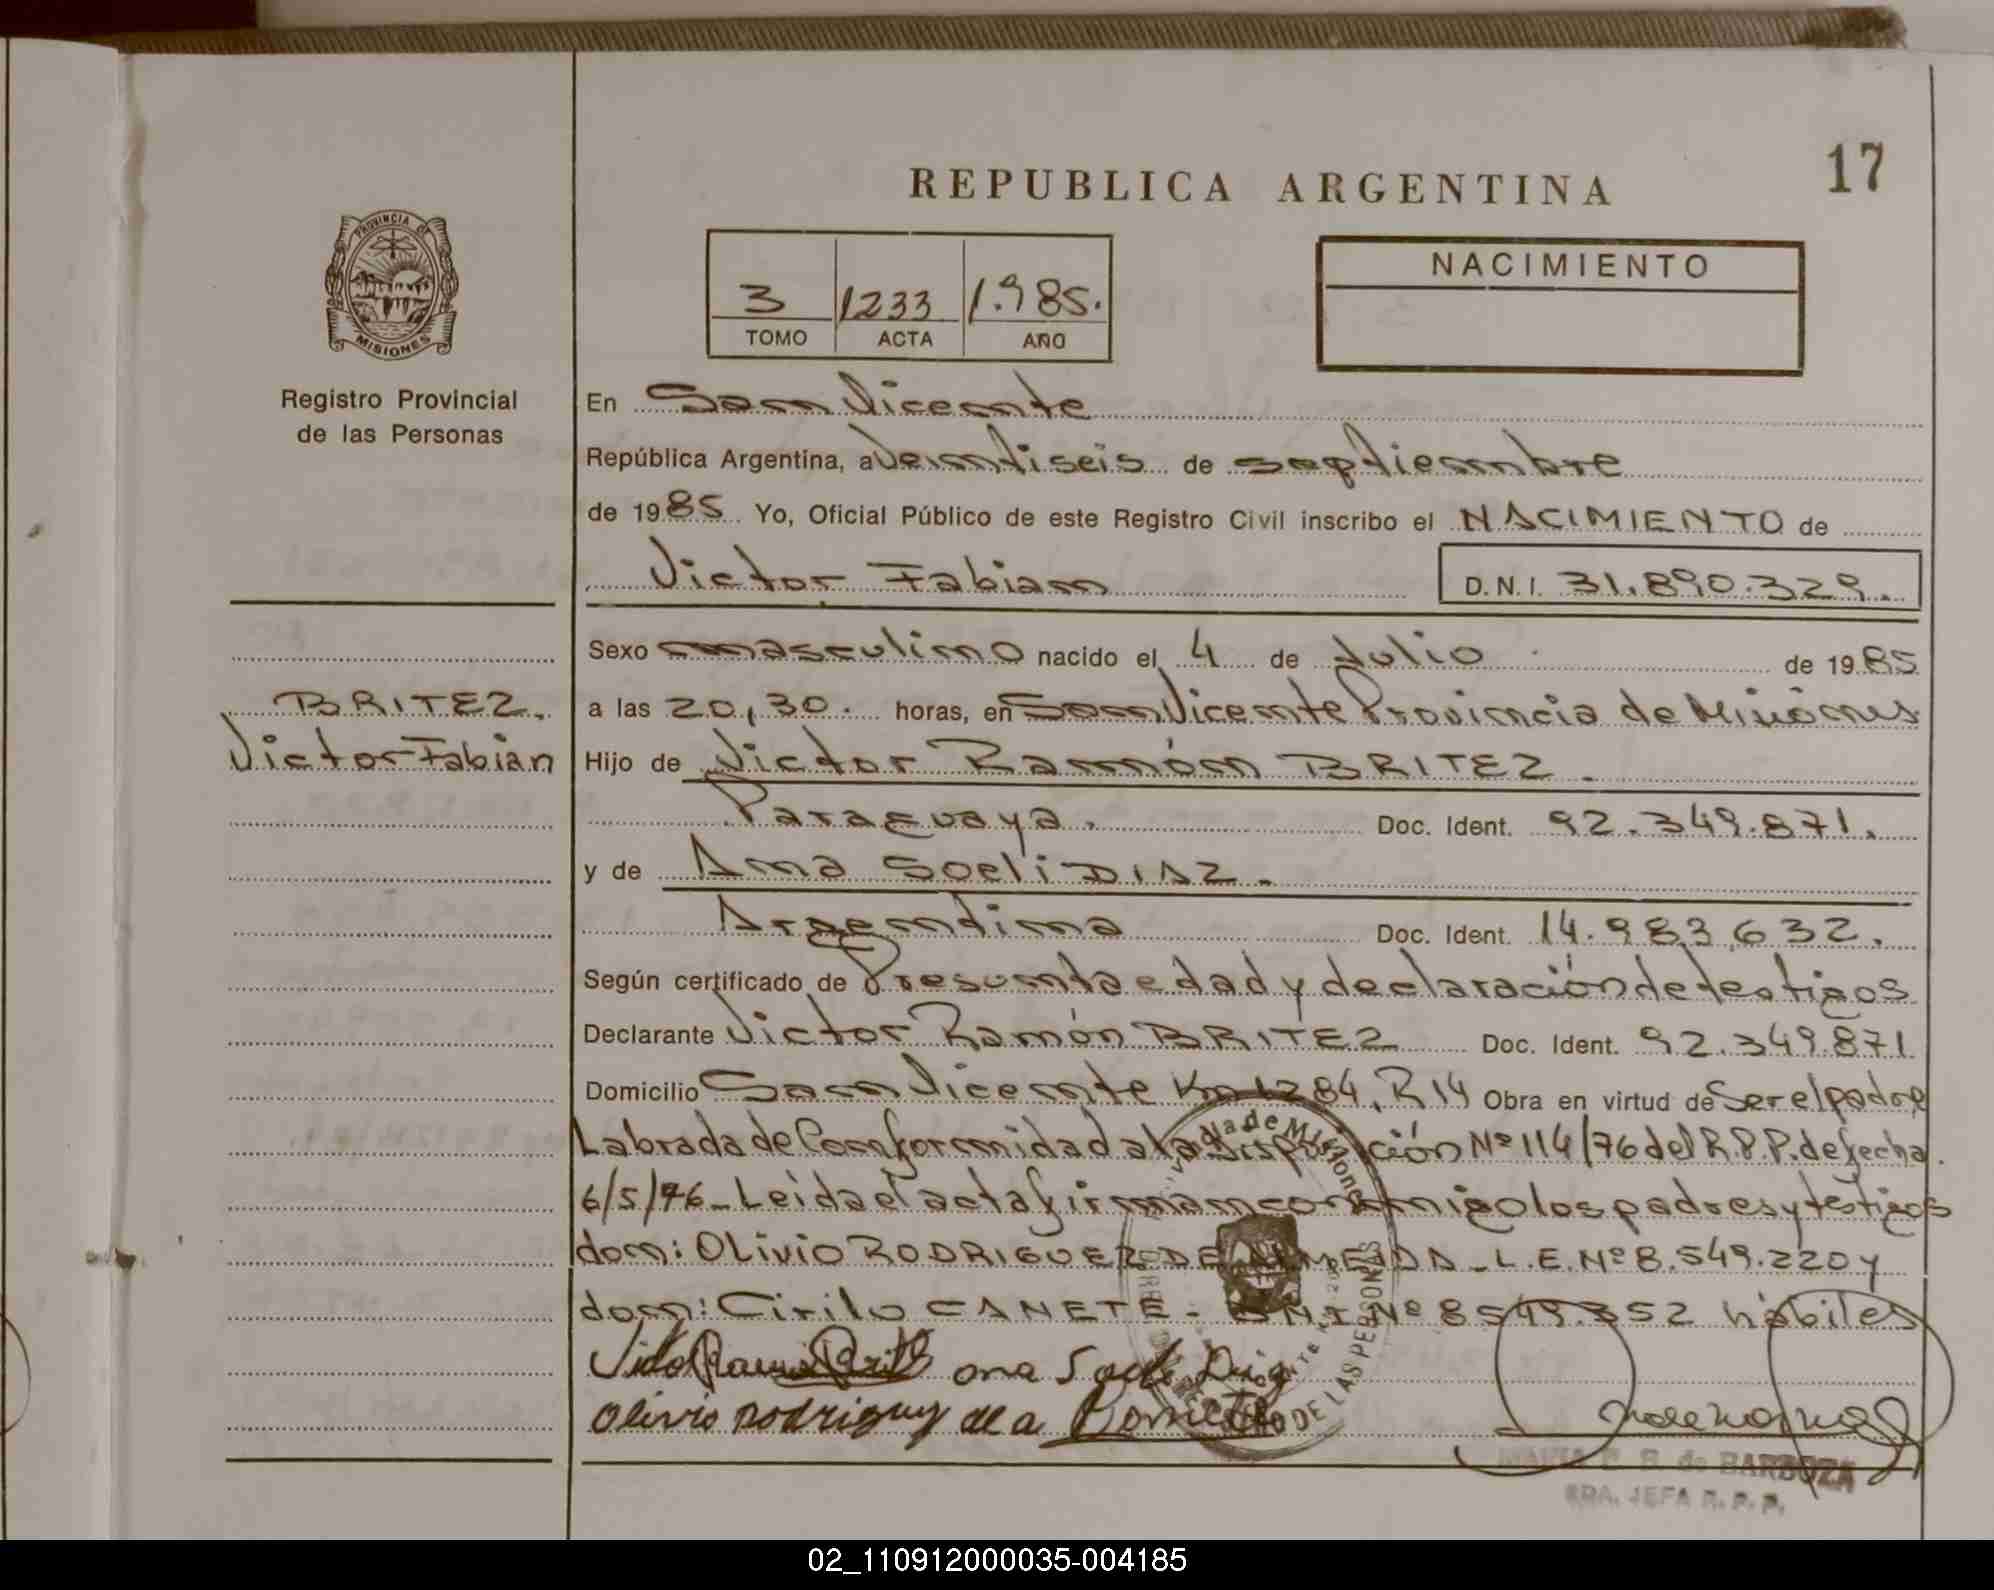 17
REPUBLICA ARGENTINA
PROVINCIA DE
MISIONES
Registro Provincial
de las Personas
3 1233 1.985.
TOMO ACTA AÑO
NACIMIENTO
En San Vicente
República Argentina, a Veintiseis de septiembre
de 1985 Yo, Oficial Público de este Registro Civil inscribo el NACIMIENTO de
Victor Fabian D.N.I. 31.890.329.
Sexo masculino nacido el 4 de Julio de 1985
BRITEZ.
Victor Fabian
a las 20,30. horas, en San Vicente Provincia de Misiones
Hijo de Victor Ramón BRITEZ.
Paraguaya. Doc. Ident. 92.349.871.
y de Ana Soeli DIAZ.
Argentina Doc. Ident. 14.983.632.
Según certificado de Presunta edad y declaración de testigos
Declarante Victor Ramón BRITEZ Doc. Ident. 92.349.871
Domicilio San Vicente Km 1284, R 14 Obra en virtud de Ser el padre
Labrada de Conformidad a la Disposición Nº 114/76 del R.P.P. de fecha.
6/5/76_ Leida el acta firman conmigo los padres y testigos
don: OLivio RODRIGUEZ DE ALMEIDA _ L.E. Nº 8.549.220 y
don: Cirilo CANETE - DNI Nº 8549.352 hábiles
ona Diaz
olivio Rodriguy de a
de Misiones
DE LAS PERSONAS
B. de BARBOZA
JEFA R. P. P.
02_110912000035-004185